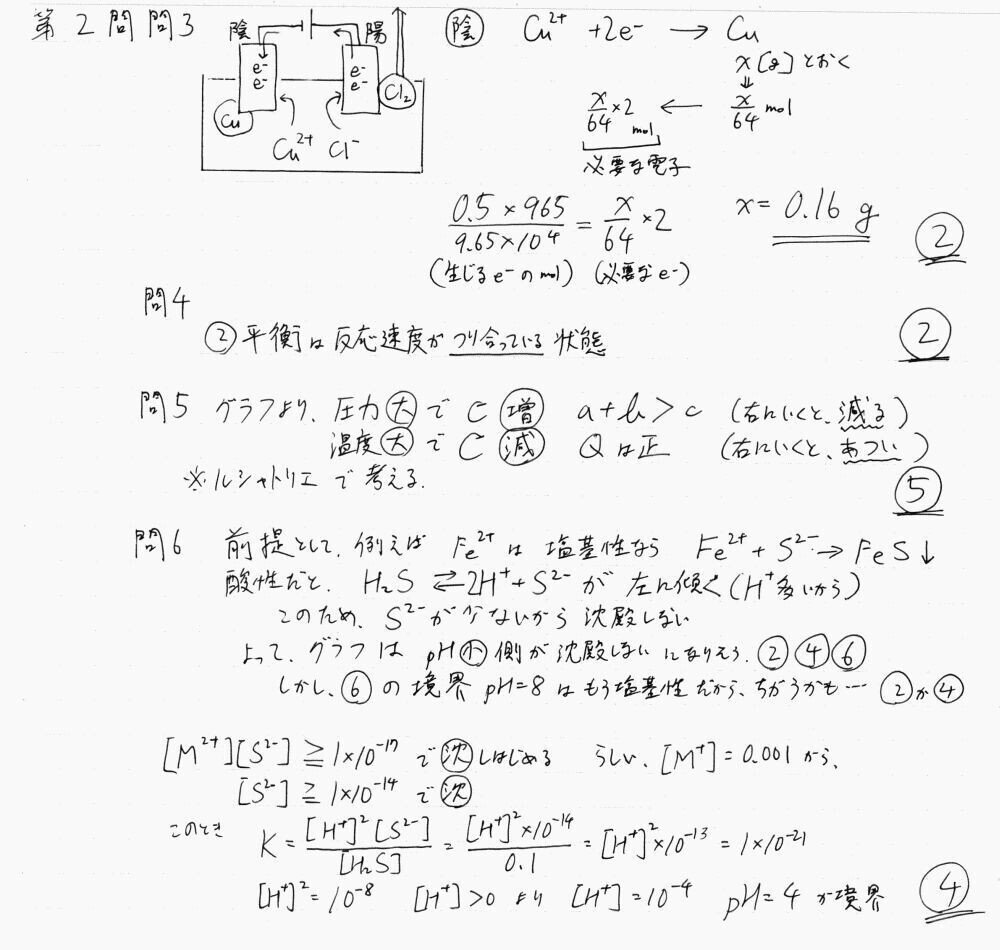 第2問問3
陰 陽
e⁻ e⁻
e⁻ e⁻
Cu Cl₂
Cu²⁺ Cl⁻
陰 Cu²⁺ +2e⁻ → Cu
x[g]とおく
⇓
x/64 × 2 mol ← x/64 mol
必要な電子
0.5×965 / 9.65×10⁴ = x/64 × 2 x = 0.16 g
(生じるe⁻のmol) (必要なe⁻)
②
問4
②平衡は反応速度がつり合っている状態 ②
問5 グラフより、圧力大でC増 a+b>c (右にいくと、減る)
温度大でC減 Qは正 (右にいくと、あつい)
※ルシャトリエで考える. ⑤
問6 前提として、例えば Fe²⁺は塩基性なら Fe²⁺+S²⁻→FeS↓
酸性だと、H₂S ⇄ 2H⁺+S²⁻ が左に傾く(H⁺多いから)
このため、S²⁻が少ないから沈殿しない
よって、グラフは pH小側が沈殿しないになりえる、②④⑥
しかし、⑥の境界 pH=8はもう塩基性だから、ちがうかも… ②か④
[M²⁺][S²⁻] ≧ 1×10⁻¹⁷ で沈しはじめる らしい、[M⁺]=0.001から、
[S²⁻] ≧ 1×10⁻¹⁴ で沈
このとき K = [H⁺]²[S²⁻] / [H₂S] = [H⁺]²×10⁻¹⁴ / 0.1 = [H⁺]²×10⁻¹³ = 1×10⁻²¹
[H⁺]²=10⁻⁸ [H⁺]>0 より [H⁺]=10⁻⁴ pH=4が境界 ④